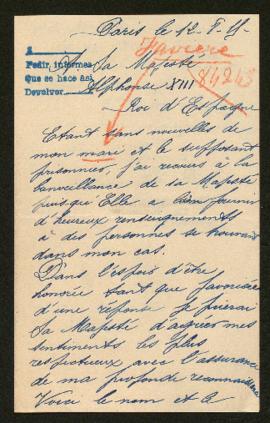 Paris le 12. 8. 15.
A
Pedir informes
Que se hace así
Devolver
A Sa Majesté
Alphonse XIII
Roi d'Espagne
Etant sans nouvelles de
mon mari et le supposant
prisonnier, j'ai recours à la
bienveillance de Sa Majesté
puisqu'Elle a fourni
d'heureux renseignements
à des personnes se trouvant
dans mon cas.
Dans l'espoir d'être
honorée tant que favorisée
d'une réponse je prierai
Sa Majesté d'agréer mes
sentiments les plus
respectueux avec l'assurance
de ma profonde reconnaissance
Voici le nom et le